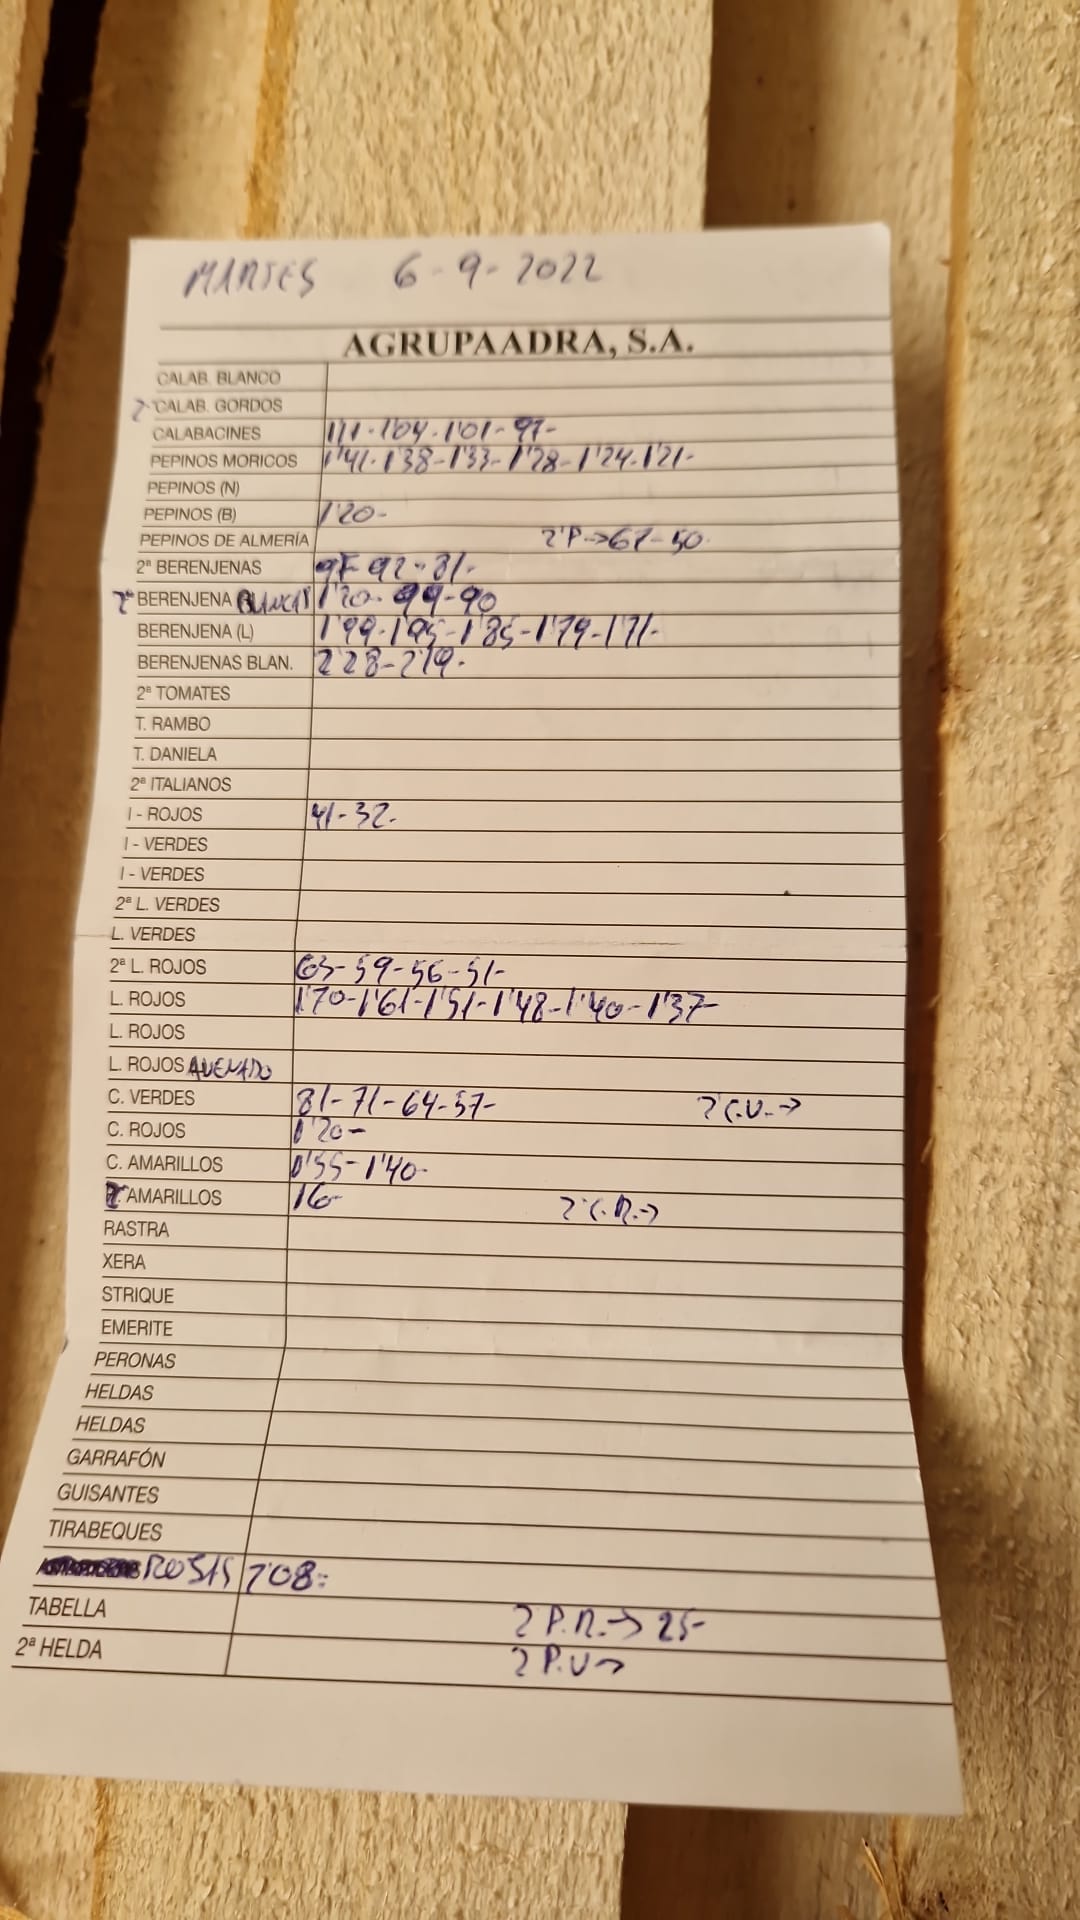 MARTES 6-9-2022
AGRUPAADRA, S.A.
CALAB. BLANCO
2ª CALAB. GORDOS
CALABACINES 1'11-1'04-1'01-97-
PEPINOS MORICOS 1'41-1'38-1'33-1'28-1'24-1'21-
PEPINOS (N)
PEPINOS (B) 1'20-
PEPINOS DE ALMERÍA 2ªP->67-50-
2ª BERENJENAS 97-92-81-
2ª BERENJENA BLANCAS 1'20-99-90
BERENJENA (L) 1'99-1'95-1'85-1'79-1'71-
BERENJENAS BLAN. 2'28-2'19-
2ª TOMATES
T. RAMBO
T. DANIELA
2ª ITALIANOS
I - ROJOS 41-32-
I - VERDES
I - VERDES
2ª L. VERDES
L. VERDES
2ª L. ROJOS 63-59-56-51-
L. ROJOS 1'70-1'61-1'51-1'48-1'40-1'37-
L. ROJOS
L. ROJOS
C. VERDES 81-71-64-57- 2ª C.V.->
C. ROJOS 1'20-
C. AMARILLOS 1'55-1'40-
AMARILLOS 16- 2ª C.R.->
RASTRA
XERA
STRIQUE
EMERITE
PERONAS
HELDAS
HELDAS
GARRAFÓN
GUISANTES
TIRABEQUES
2'08-
TABELLA 2 P.R.-> 25-
2ª HELDA 2 P.V->